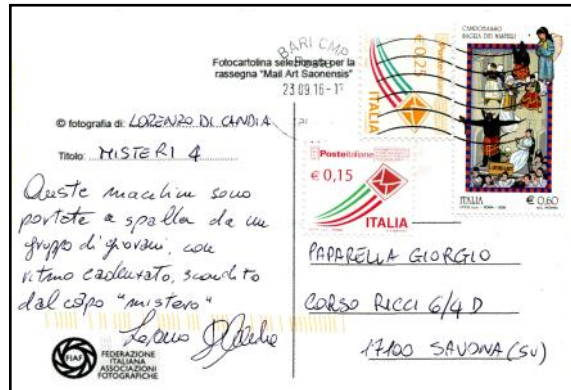 Fotocartolina selezionata per la
rassegna "Mail Art Saonensis"
© fotografia di: LORENZO DI CANDIA
Titolo: MISTERI 4
Queste macchine sono
portate a spalla da un
gruppo di giovani, con
ritmo cadenzato, scandito
dal capo "mistero"
FIAF
FEDERAZIONE
ITALIANA
ASSOCIAZIONI
FOTOGRAFICHE
BARI CMP
23 09 16-1
€ 0,25
ITALIA
Posteitaliane
€ 0,15
ITALIA
CAMPOBASSO
SAGRA DEI MISTERI
ITALIA € 0,60
PAPARELLA GIORGIO
CORSO RICCI 6/4 D
17100 SAVONA (SV)